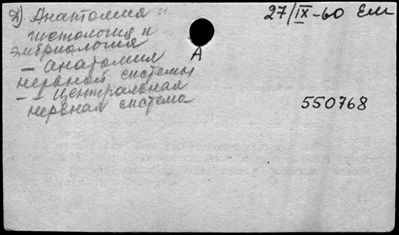 Д) Анатомия и
гистология и
эмбриология
– анатомия
нервной системы
– – Центральная
нервная система
А
27/IX-60 Ем
550768